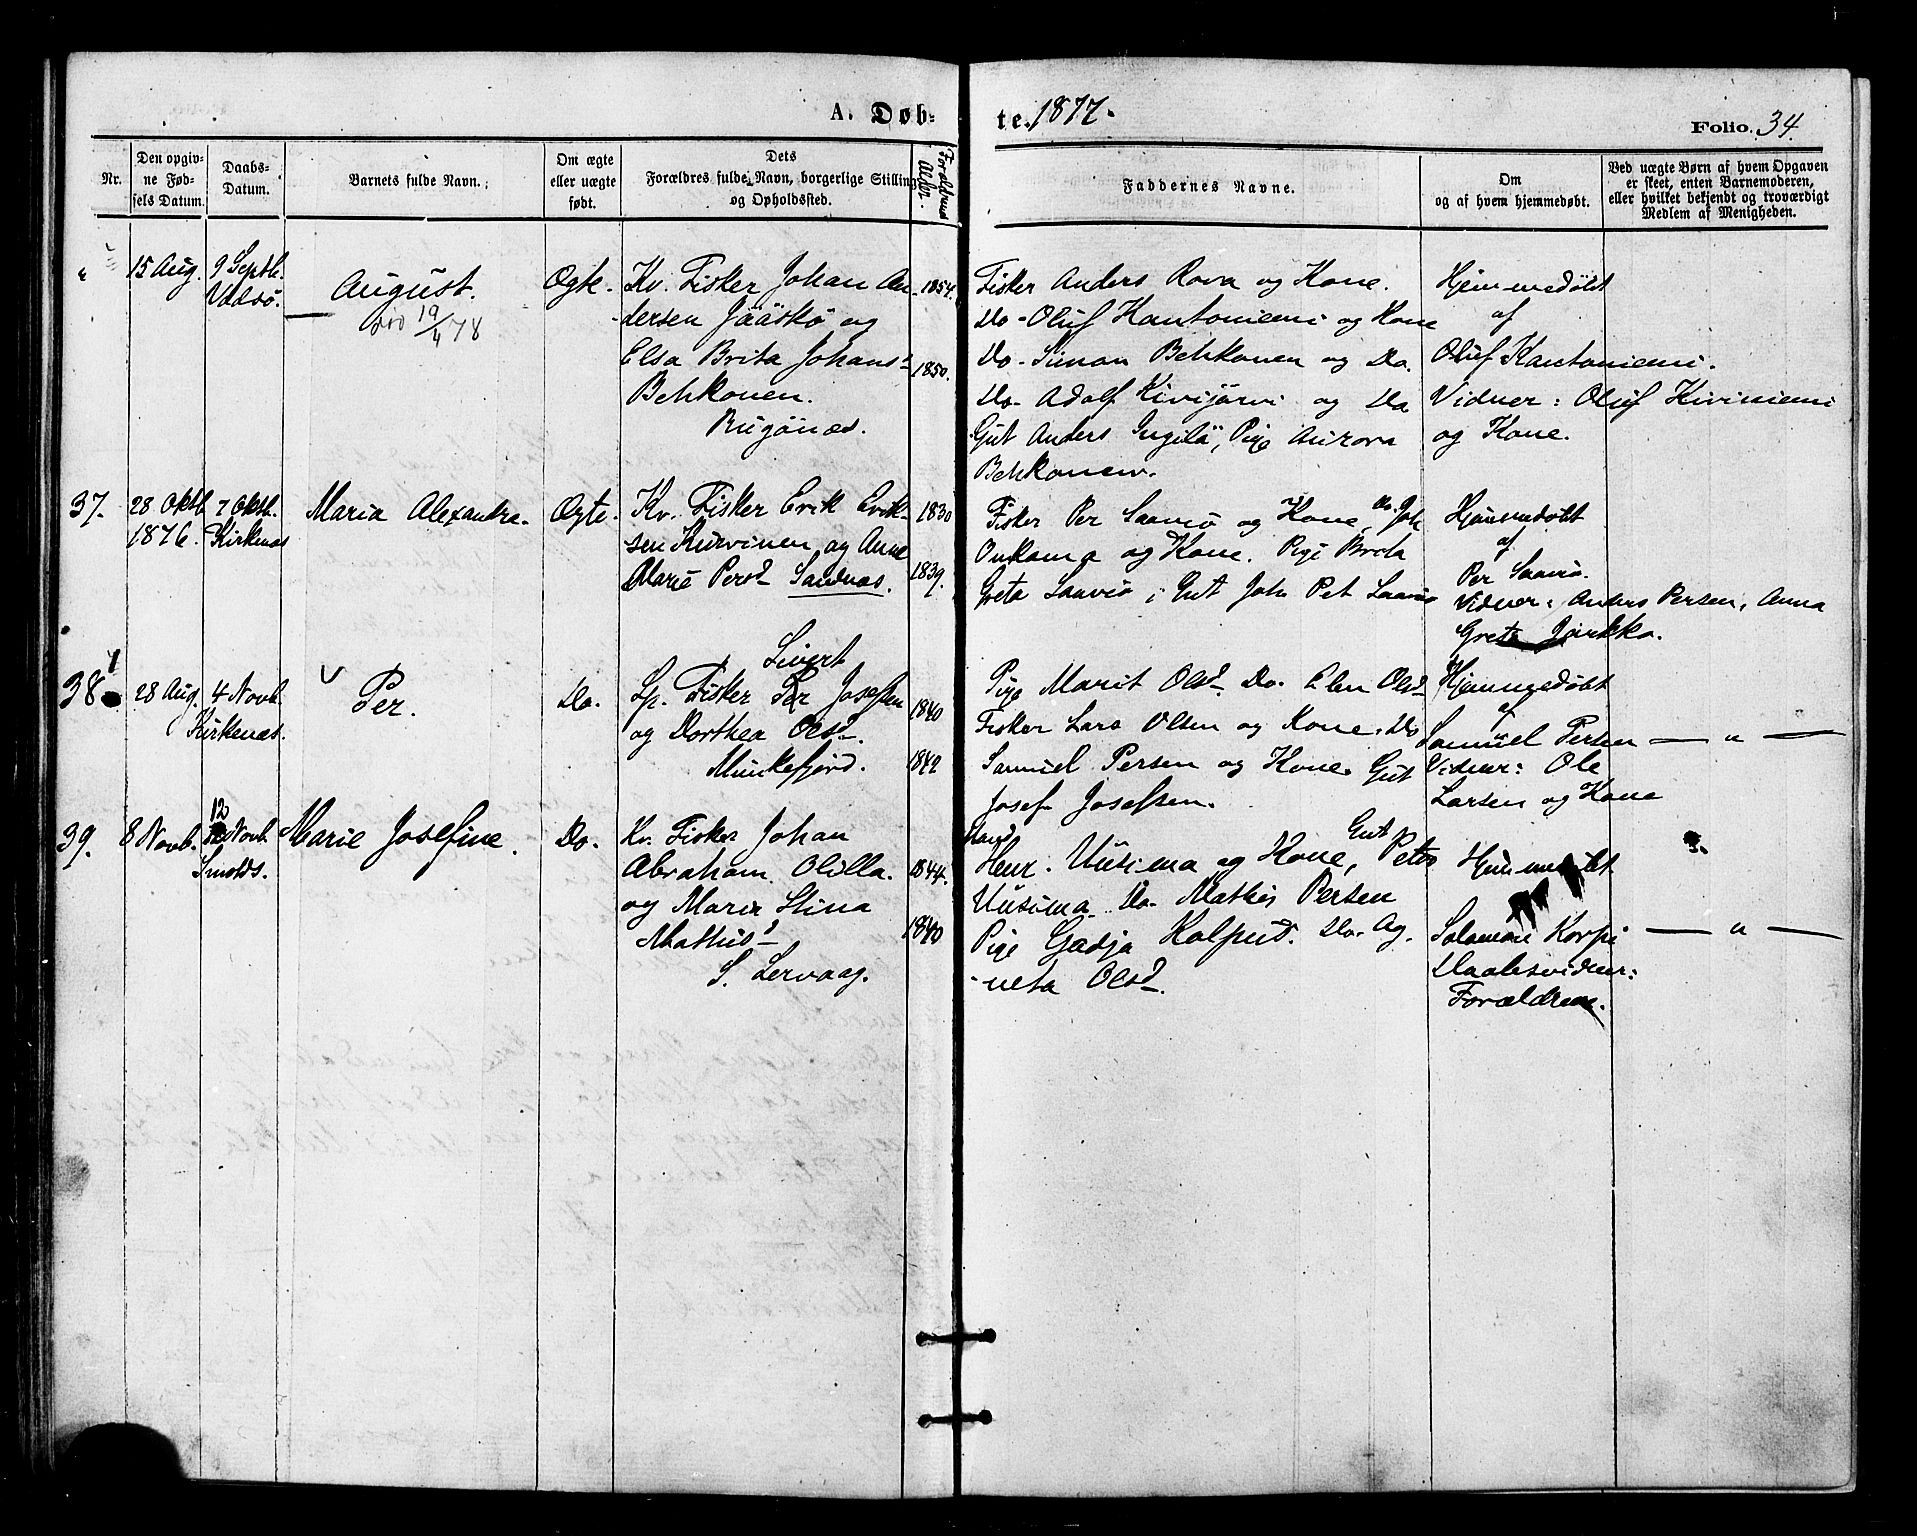 A. Døb-
te. 1877.
Folio. 34.
Nr.
Den opgiv-
ne Fød-
sels Datum.
Daabs-
Datum.
Barnets fulde Navn.
Om ægte
eller uægte
født.
Dets
Forældres fulde Navn, borgerlige Stilling
og Opholdssted.
Forældrenes
Alder.
Faddernes Navne.
Om
og af hvem hjemmedøbt.
Ved uægte Børn af hvem Opgaven
er skeet, enten Barnemoderen,
eller hvilket bekjendt og troværdigt
Medlem af Menigheden.
"
15 Aug.
9 Septb.
Vadsö.
August.
död 19/4 78
Ægte.
Kv. Fisker Johan An-
dersen Jääskö og
Elsa Brita Johansd
Behkonen.
Bugönæs.
1854.
1850.
Fisker Anders Rova og Kone.
Do - Oluf Kantoniemi og Kone
Do - Simon Behkonen og Do.
Do - Adolf Kivijärvi og Do
Gut Anders Ingilä, Pige Aurora
Behkonen.
Hjemmedöbt
af
Oluf Kantoniemi.
Vidner: Oluf Kiviniemi
og Kone.
37.
28 Oktb.
1876.
7 Oktb.
Kirkenæs
Maria Alexandra.
Ægte.
Kv. Fisker Erik Erik-
sen Kurvinen og Anne
Marie Persd Sandnæs.
1830
1839.
Fisker Per Saavio og Kone, Do. Joh
Onkama og Kone. Pige Brita
Greta Saavio, Gut Joh Pet Saavio
Hjemmedöbt
af
Per Saavio.
Vidner: Anders Persen, Anna
Greta Jarkko.
38
28 Aug.
4 Novb.
Kirkenæs.
Per.
Do.
Sivert
Lp. Fisker Per Josefsen
og Dorthea Olsd.
Munkefjord.
1840
1842
Pige Marit Olsd. Do. Elen Olsd
Fisker Lars Olsen og Kone. Do
Samuel Persen og Kone. Gut
Josef Josefsen.
Hjemmedöbt
af
Samuel Persen
Vidner: Ole
Larsen og Kone
— " —
39.
8 Novb.
12
Novb.
Marie Josefine.
Do.
Kv. Fisker Johan
Abraham Olilla.
og Maria Stina
Mathisd
S. Lervaag.
1844.
1840
Henr. Uusima og Kone, Gut Peter
Uusima. Do. Mathis Persen
Pige Gadja Kalpud. Do. Ag-
-neta Olsd.
Hjemmedöbt
Salomon Korpi
Daabsvidner:
Forældrene.
— " —